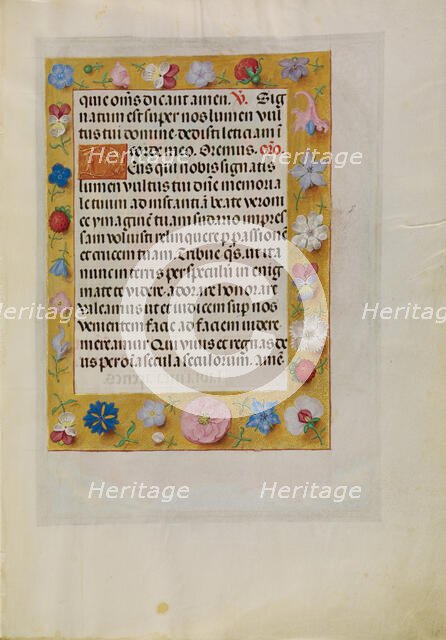 quie om̄s dicant amen. V. Sig
natum est super nos lumen vul
tus tui domine. dedisti leticiam i
corde meo. Oremus. oro
Deus qui nobis signatis
lumen vultus tui dn̄e memoria
le tuum ad instantiā beate veroni
ce ymaginē tuam sudario impres
sam voluisti relinquere p̱ passionē
et crucem tuam. Tribue q̄s. ut ita
nunc in terris per speculū in enig
mate te videre. adorare honorare
valeamus ut te iudicem sup nos
venientem facie ad faciem videre
mereamur. Qui vivis et regnas de
us per oīa secula seculorum. amē
Heritage
Heritage
Heritage
Heritage
Heritage
Heritage
Heritage
Heritage